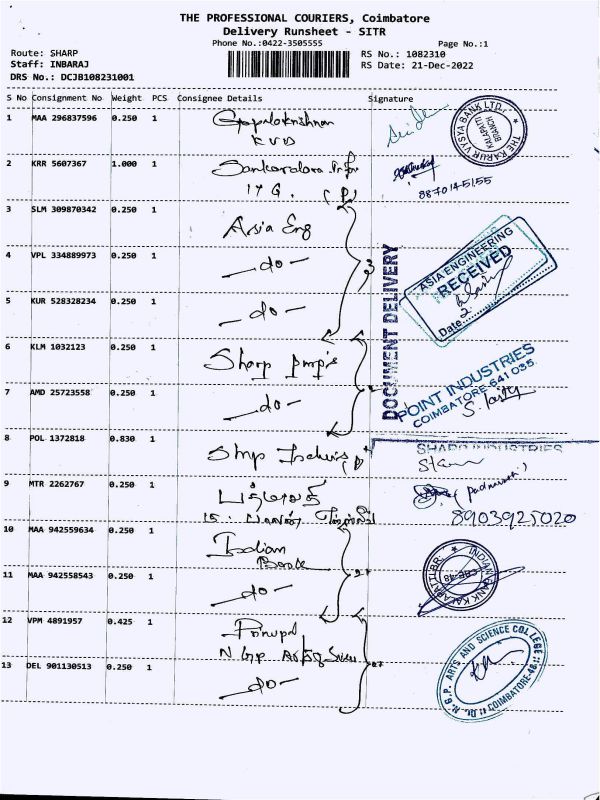 THE PROFESSIONAL COURIERS, Coimbatore
Delivery Runsheet - SITR
Phone No.:0422-3505555
Page No.:1
Route: SHARP
Staff: INBARAJ
DRS No.: DCJB108231001
RS No.: 1082310
RS Date: 21-Dec-2022
S No Consignment No Weight PCS Consignee Details Signature
1 MAA 296837596 0.250 1 Gopalakrishnan
KVB
THE KARUR VYSYA BANK LTD.
KALAPATTI
BRANCH
2 KRR 5607367 1.000 1
17 G.
8870145155
3 SLM 309870342 0.250 1 Asia Eng
4 VPL 334889973 0.250 1 -do- 3
5 KUR 528328234 0.250 1 -do-
DOCUMENT DELIVERY
ASIA ENGINEERING
RECEIVED
Date
6 KLM 1032123 0.250 1 Sharp pumps
7 AMD 25723558 0.250 1 -do-
POINT INDUSTRIES
COIMBATORE-641 035.
8 POL 1372818 0.830 1
SHARP INDUSTRIES
9 MTR 2262767 0.250 1
8903925020
10 MAA 942559634 0.250 1 Indian
Bank
11 MAA 942558543 0.250 1 -do-
INDIAN BANK KALAPATTI BR.
CBE-48
12 VPM 4891957 0.425 1 Principal
13 DEL 901130513 0.250 1 -do-
N.G.P. ARTS AND SCIENCE COLLEGE
COIMBATORE-48